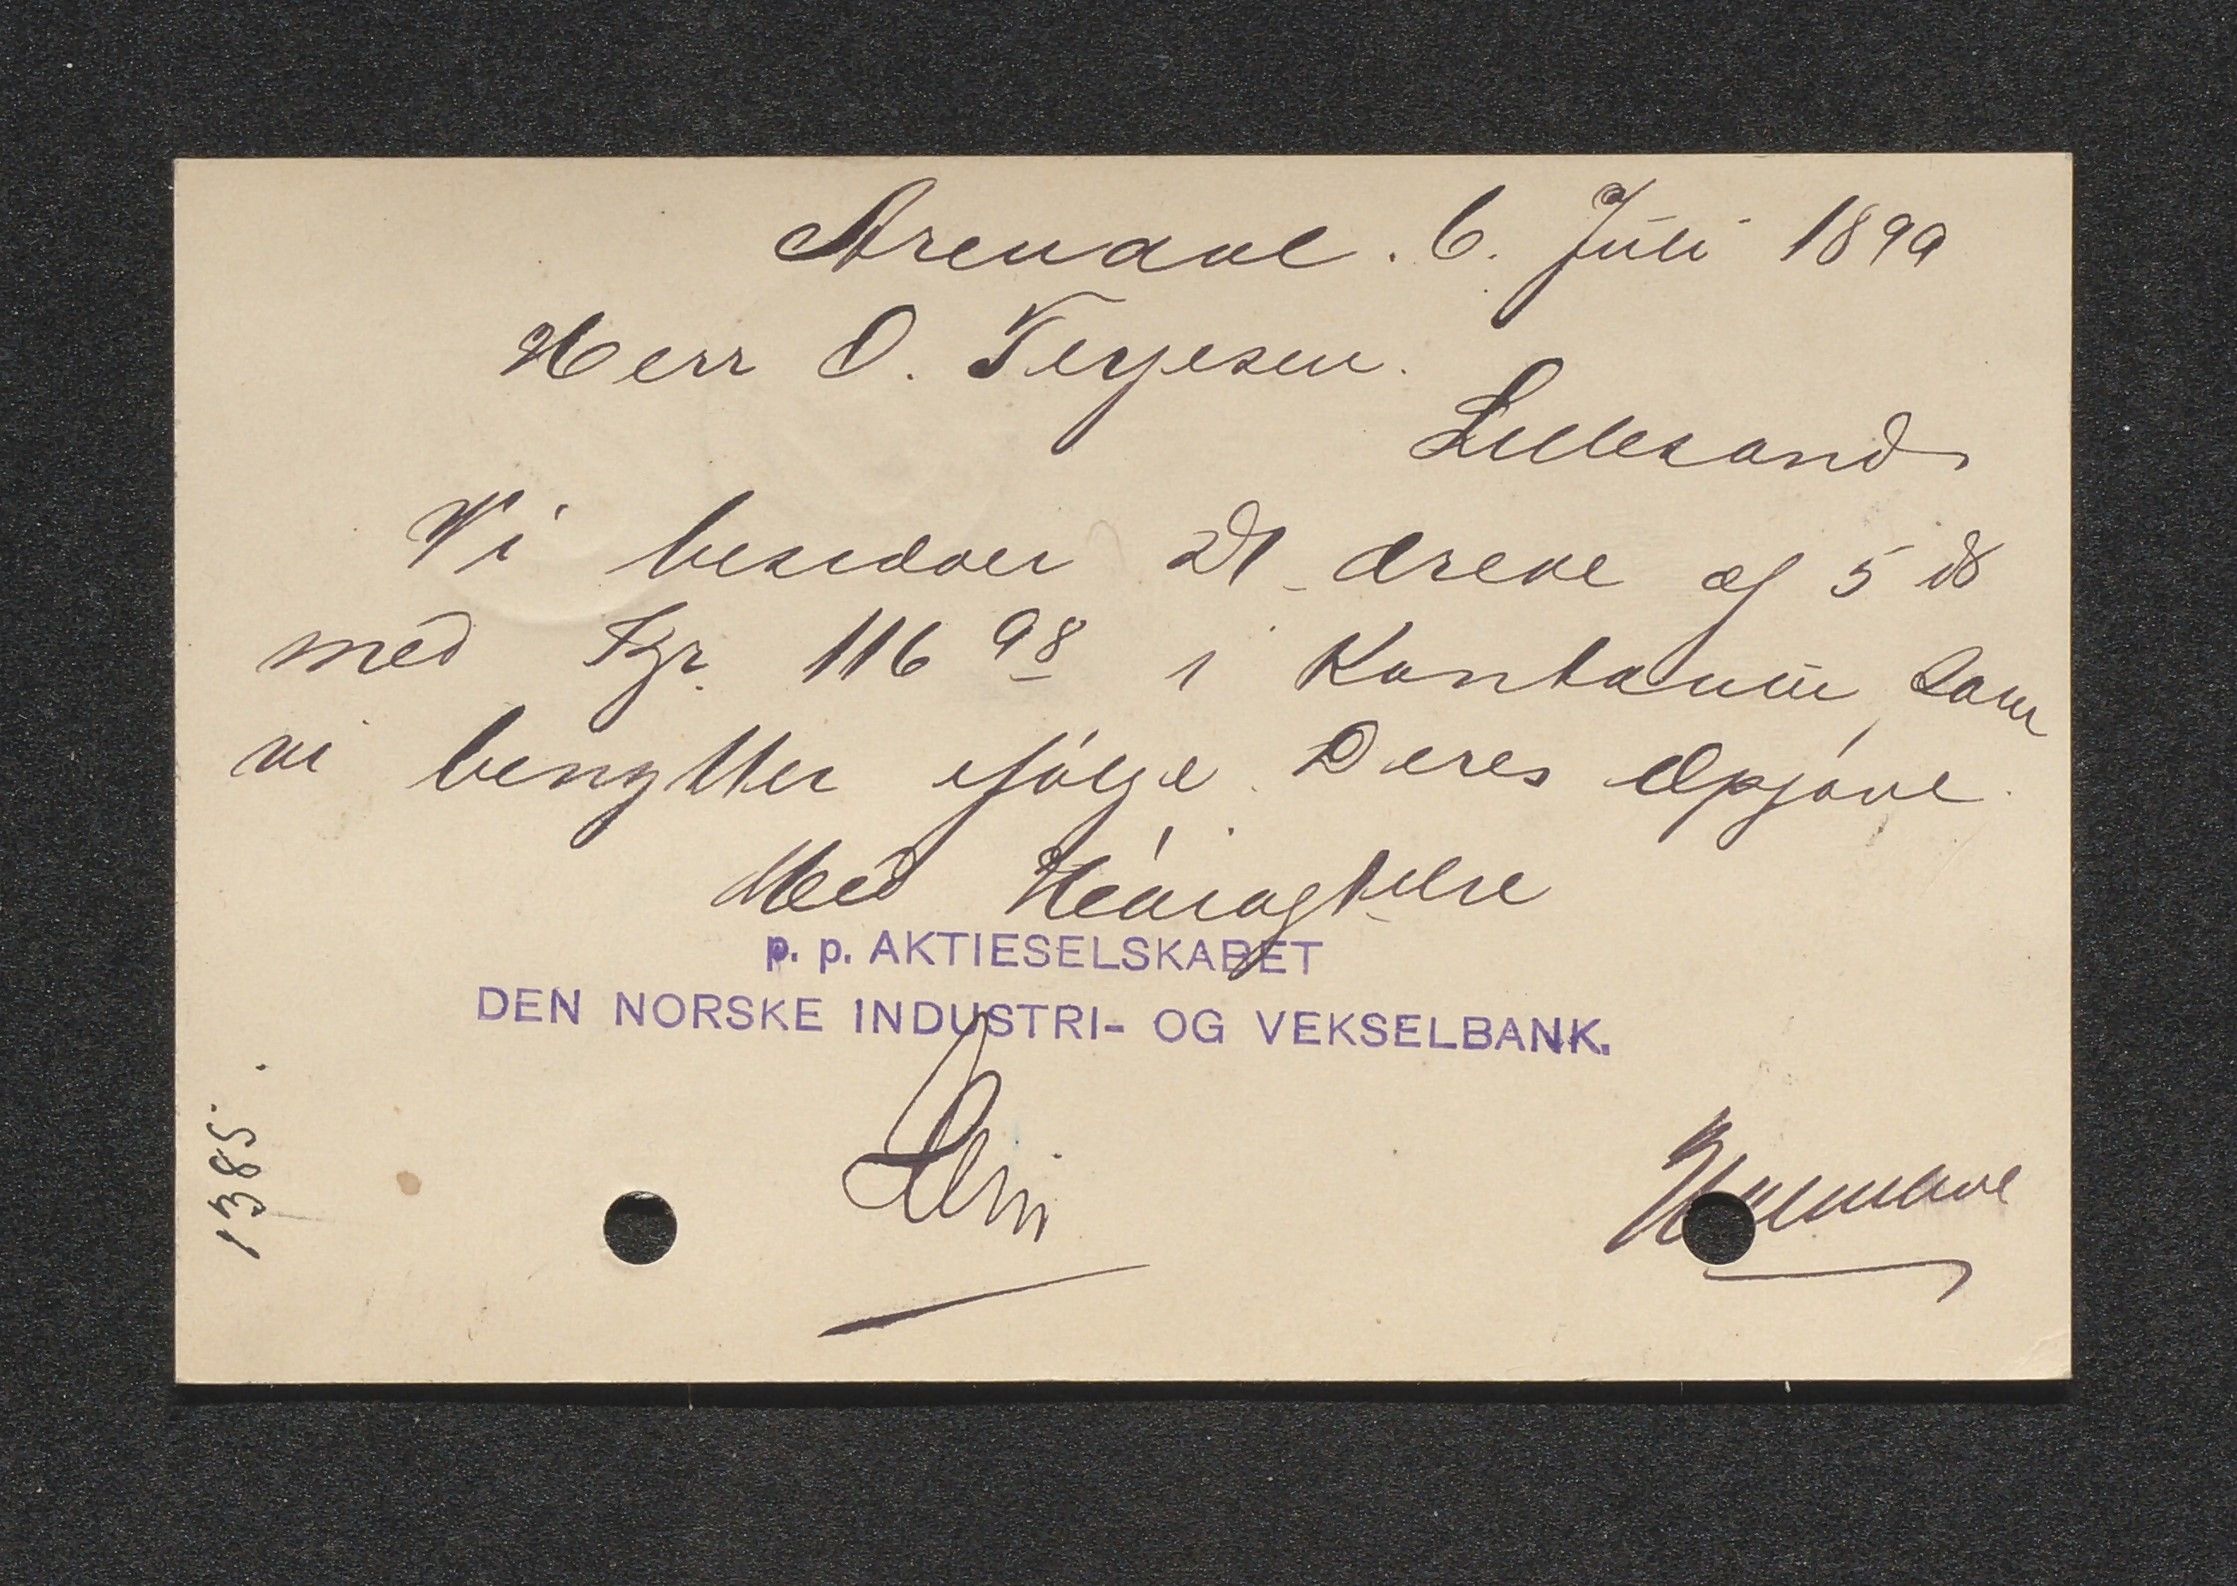 Arendal. 6. Juli 1899
Herr O. Terjesen.
Lillesand
Vi besidder Dt. ærede af 5 ds
med Kr. 116 98 i Kontanter, som
vi benytter ifølge Deres Opgave.
Med Høiagtelse
p. p. AKTIESELSKABET
DEN NORSKE INDUSTRI- OG VEKSELBANK.
1385.